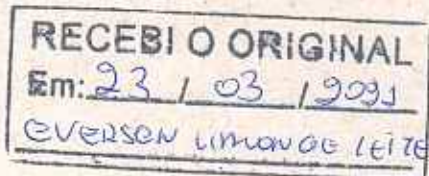 RECEBI O ORIGINAL
Em: 23 / 03 / 2021
EVERSON LEITE